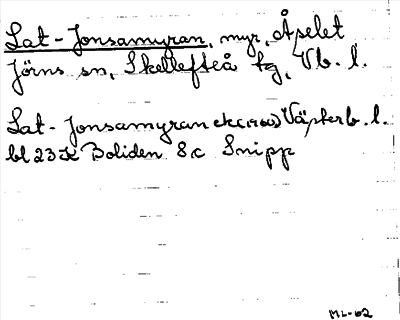 Lat-Jonsamyran, myr, Åselet
Jörns sn, Skellefteå tg, Vb. l.
Lat-Jonsamyran ek Västerb. l.
bl 23 K Boliden 8c Snipp
ML-62